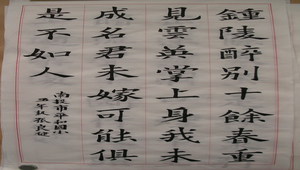 鍾陵醉別十餘春重
見雲英掌上身我未
成名君未嫁可能俱
是不如人
南投市平和國小